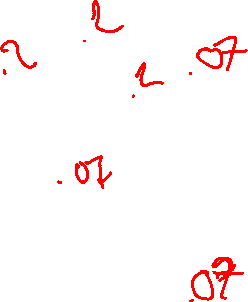 .2
.2
.2
.07
.07
.07